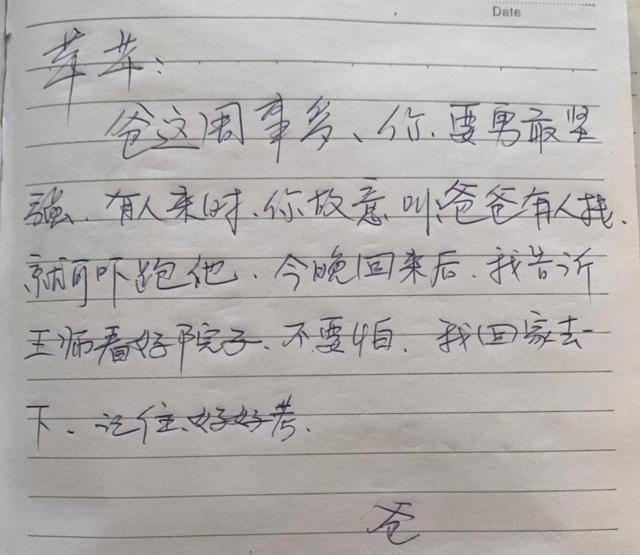 Date
苹苹：
爸这周事多、你、要勇敢坚
强、有人来时、你故意叫爸爸有人找、
就可吓跑他、今晚回来后、我告诉
王师看好院子、不要怕、我回家去一
下、记住、好好考、
爸